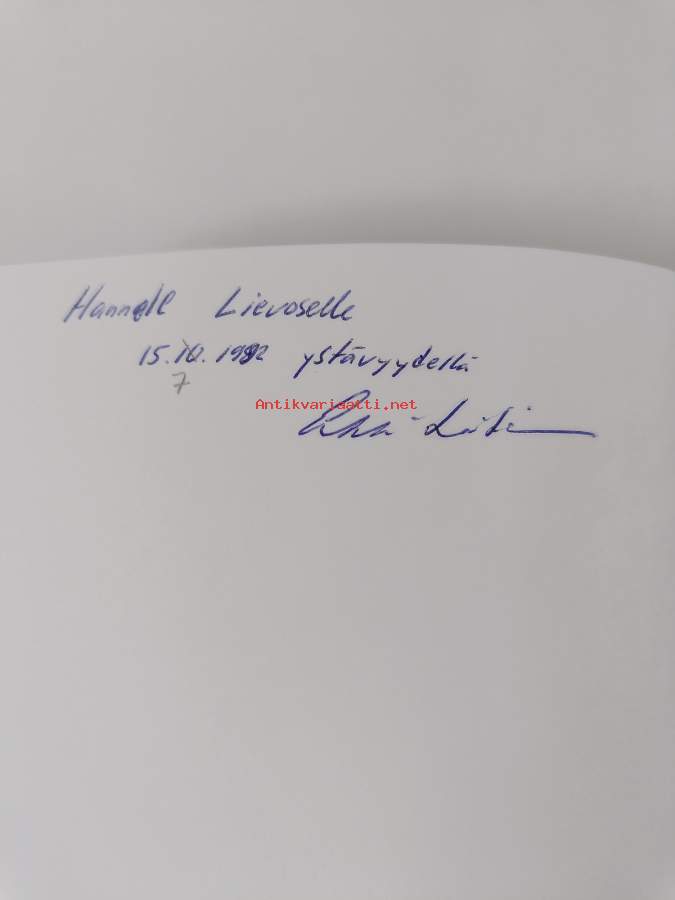 Hannell Lievoselle
15.10.1992 ystävyydellä
7
Antikvariaatti.net